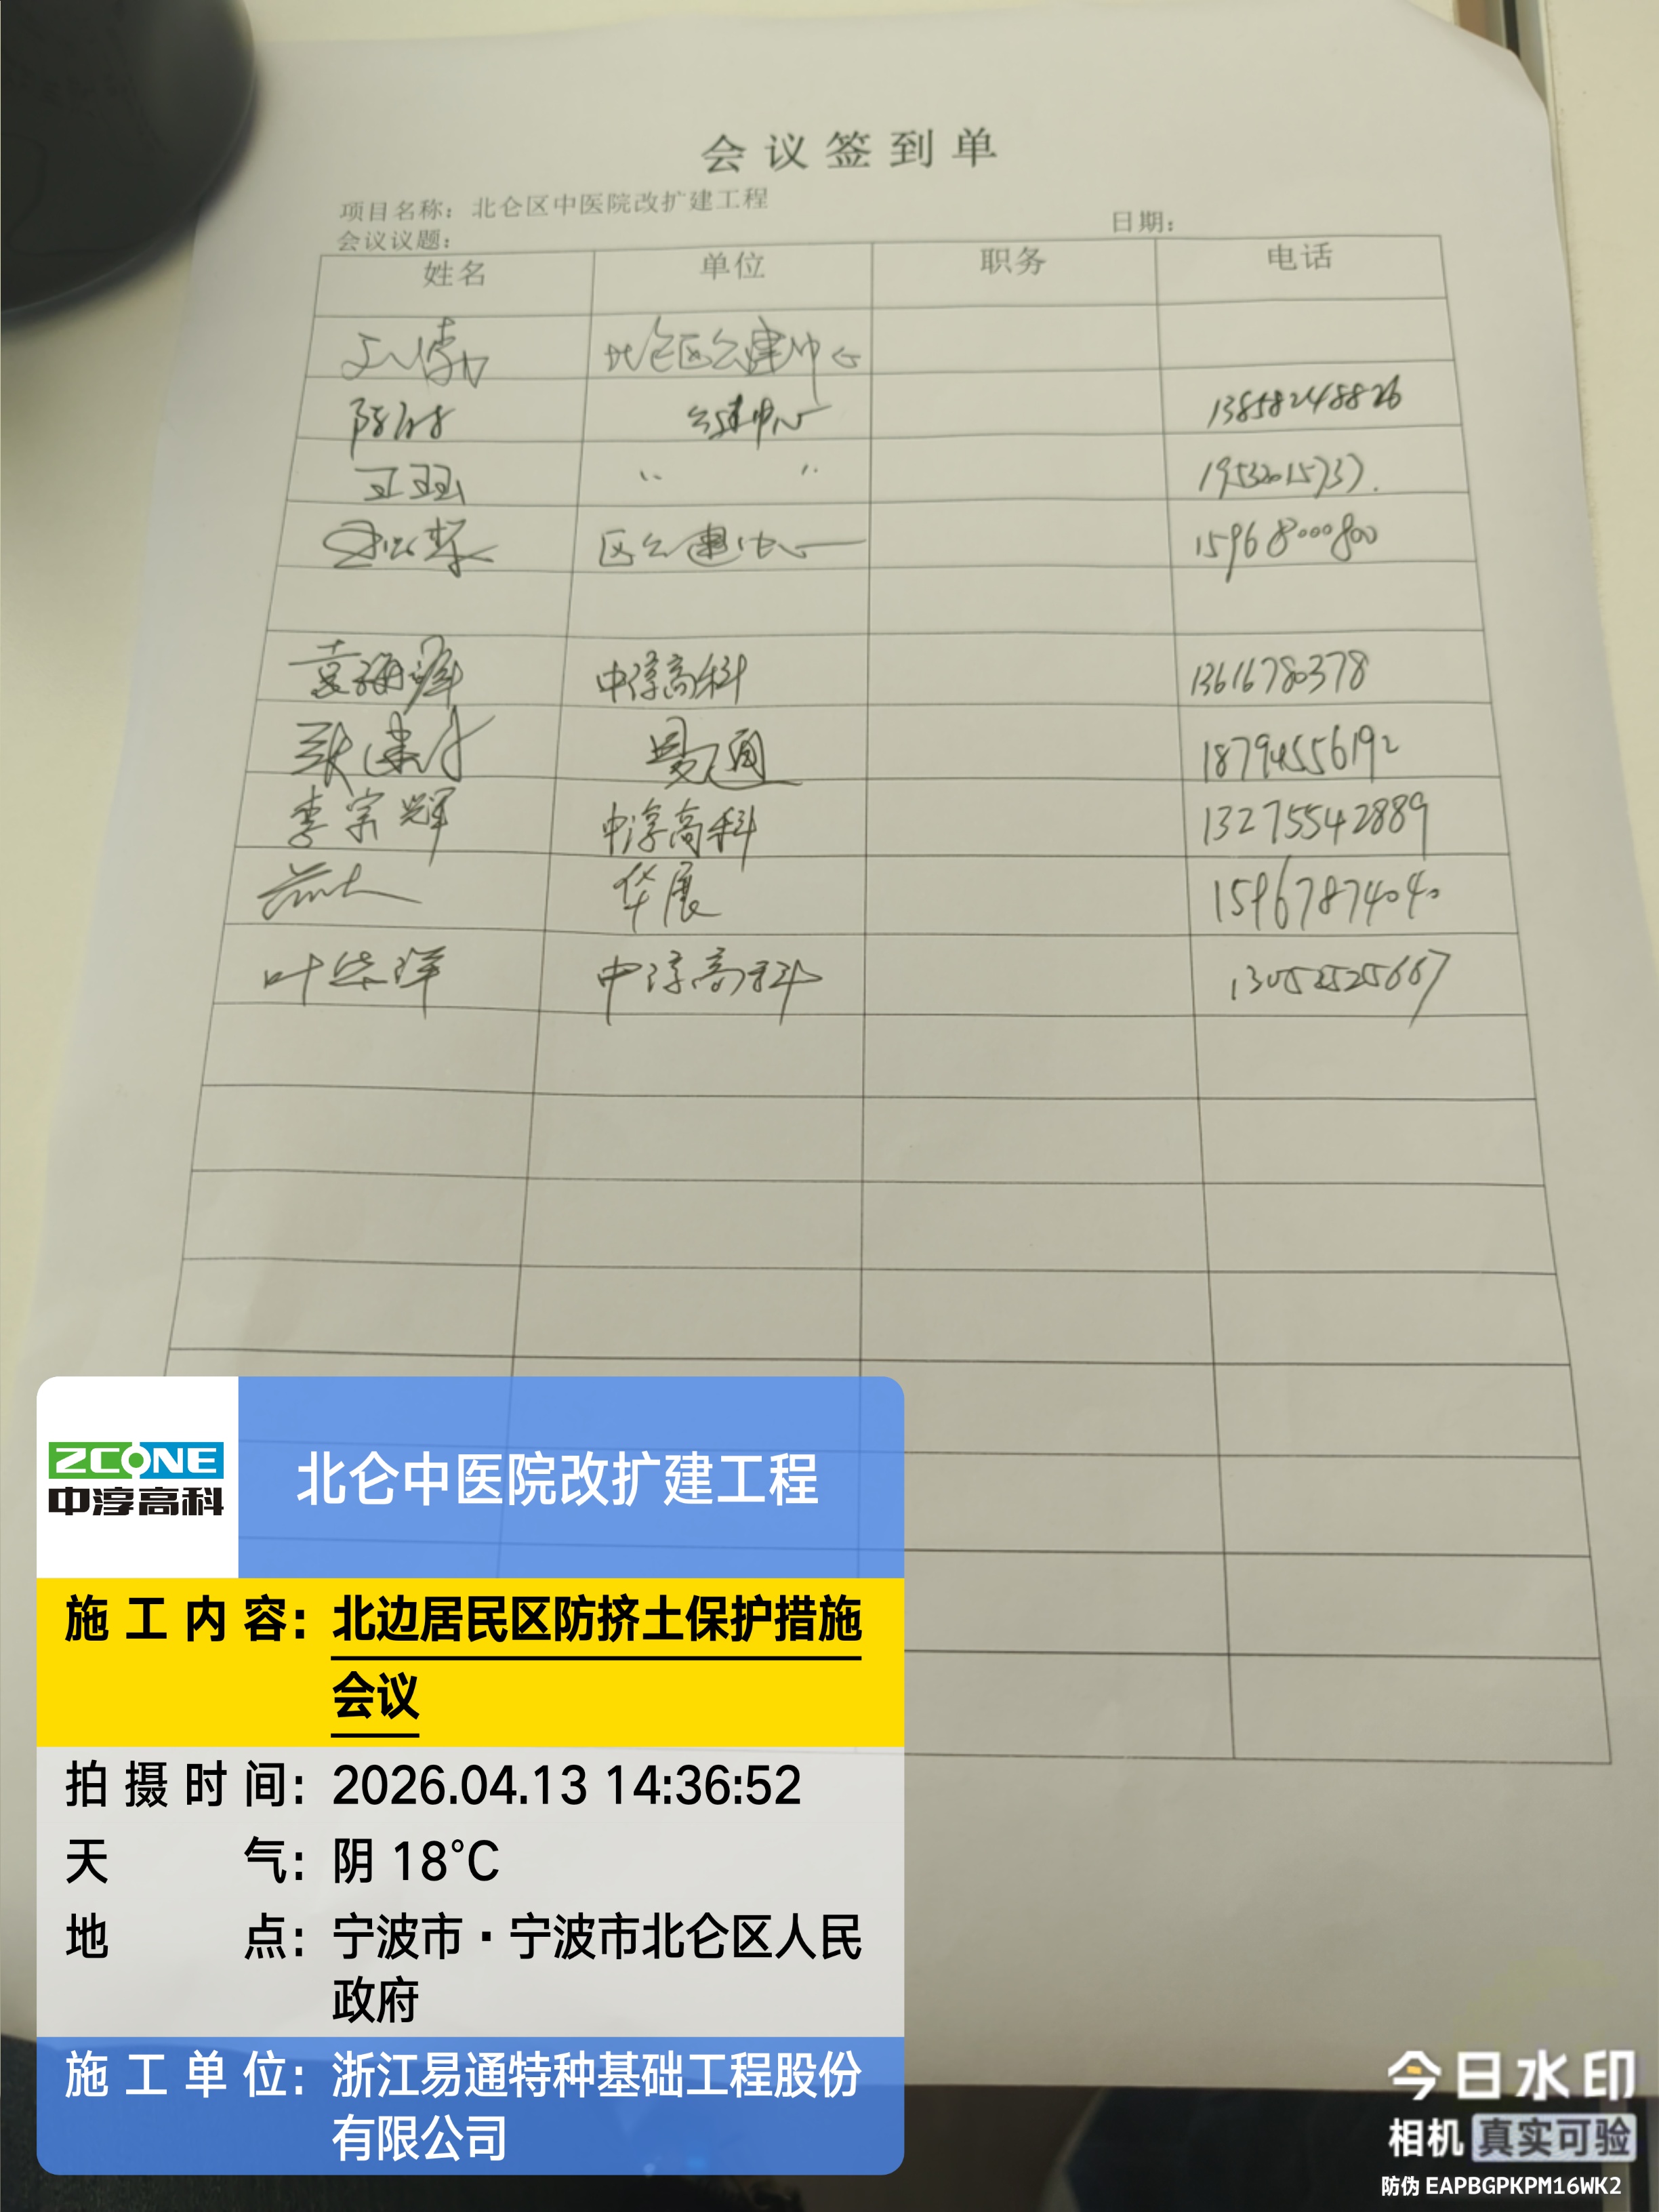 会议签到单
项目名称：北仑区中医院改扩建工程
会议议题：
日期：
姓名 单位 职务 电话
北仑区公建中心
公建中心 13858248826
王 〃 〃 19532015737.
区公建中心 15968000800
袁海 中淳高科 13616780378
通 18794556192
李宗辉 中淳高科 13275542889
华展 15967874040
叶 中淳高科
ZCONE
中淳高科
北仑中医院改扩建工程
施工内容：北边居民区防挤土保护措施
会议
拍摄时间：2026.04.13 14:36:52
天气：阴 18°C
地点：宁波市·宁波市北仑区人民
政府
施工单位：浙江易通特种基础工程股份
有限公司
今日水印
相机 真实可验
防伪 EAPBGPKPM16WK2